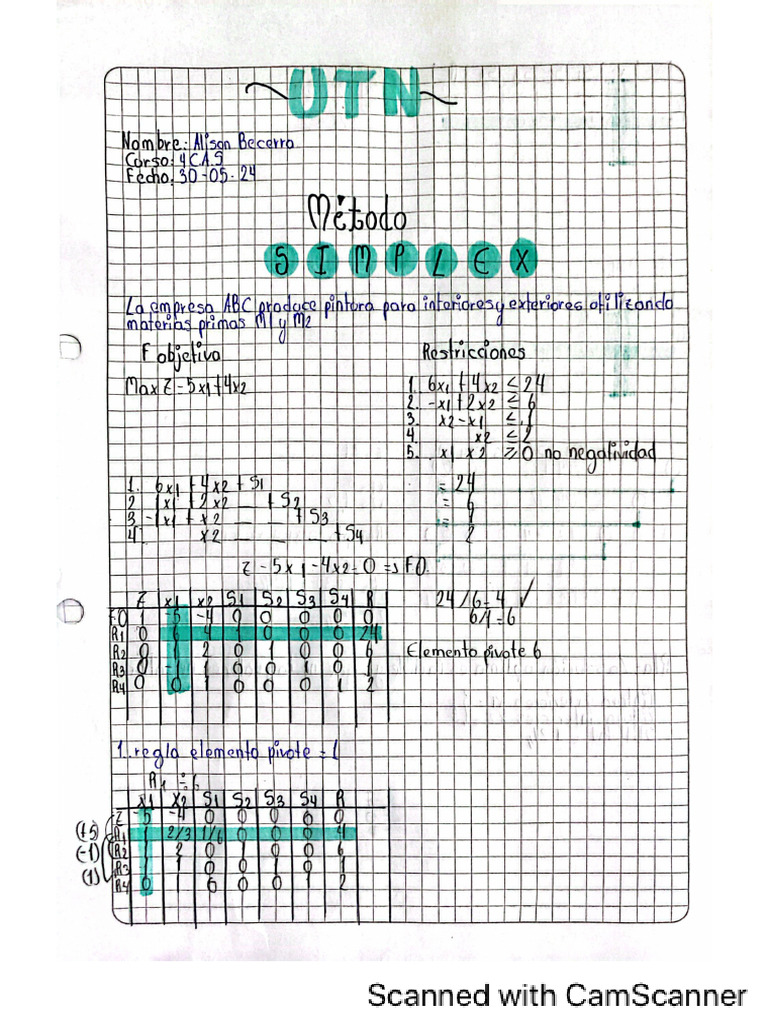 UTN
Nombre: Alison Becerra
Corso: 4CAS
Fecha: 30-05-24
Método
SIMPLEX
La empresa ABC produce pintura para interiores y exteriores utilizando
materias primas M1 y M2
F objetivo
Restricciones
Max Z = 5x1+4x2
1. 6x1 + 4x2 ≤ 24
2. -x1 + 2x2 ≤ 6
3. x2 - x1 ≤ 1
4. x2 ≤ 2
5. x1 x2 ≥ 0 no negatividad
1. 6x1 + 4x2 + S1 = 24
2 1x1 + 2x2 _ + S2 = 6
3 -1x1 + x2 _ _ + S3 = 1
4 x2 _ _ _ + S4 2
Z - 5x1 - 4x2 = 0 => FO.
Z x1 x2 S1 S2 S3 S4 R
FO 1 -5 -4 0 0 0 0 0
R1 0 6 4 1 0 0 0 24
R2 0 1 2 0 1 0 0 6
R3 0 -1 1 0 0 1 0 1
R4 0 0 1 0 0 0 1 2
24/6=4 ✓
6/1=6
Elemento pivote 6
1. regla elemento pivote = 1
R1 ÷ 6
x1 x2 S1 S2 S3 S4 R
Z -5 -4 0 0 0 0 0
(+5) R1 1 2/3 1/6 0 0 0 4
(-1) R2 1 2 0 1 0 0 6
R3 1 1 0 0 1 0 1
(1) R4 0 1 0 0 0 1 2
Scanned with CamScanner